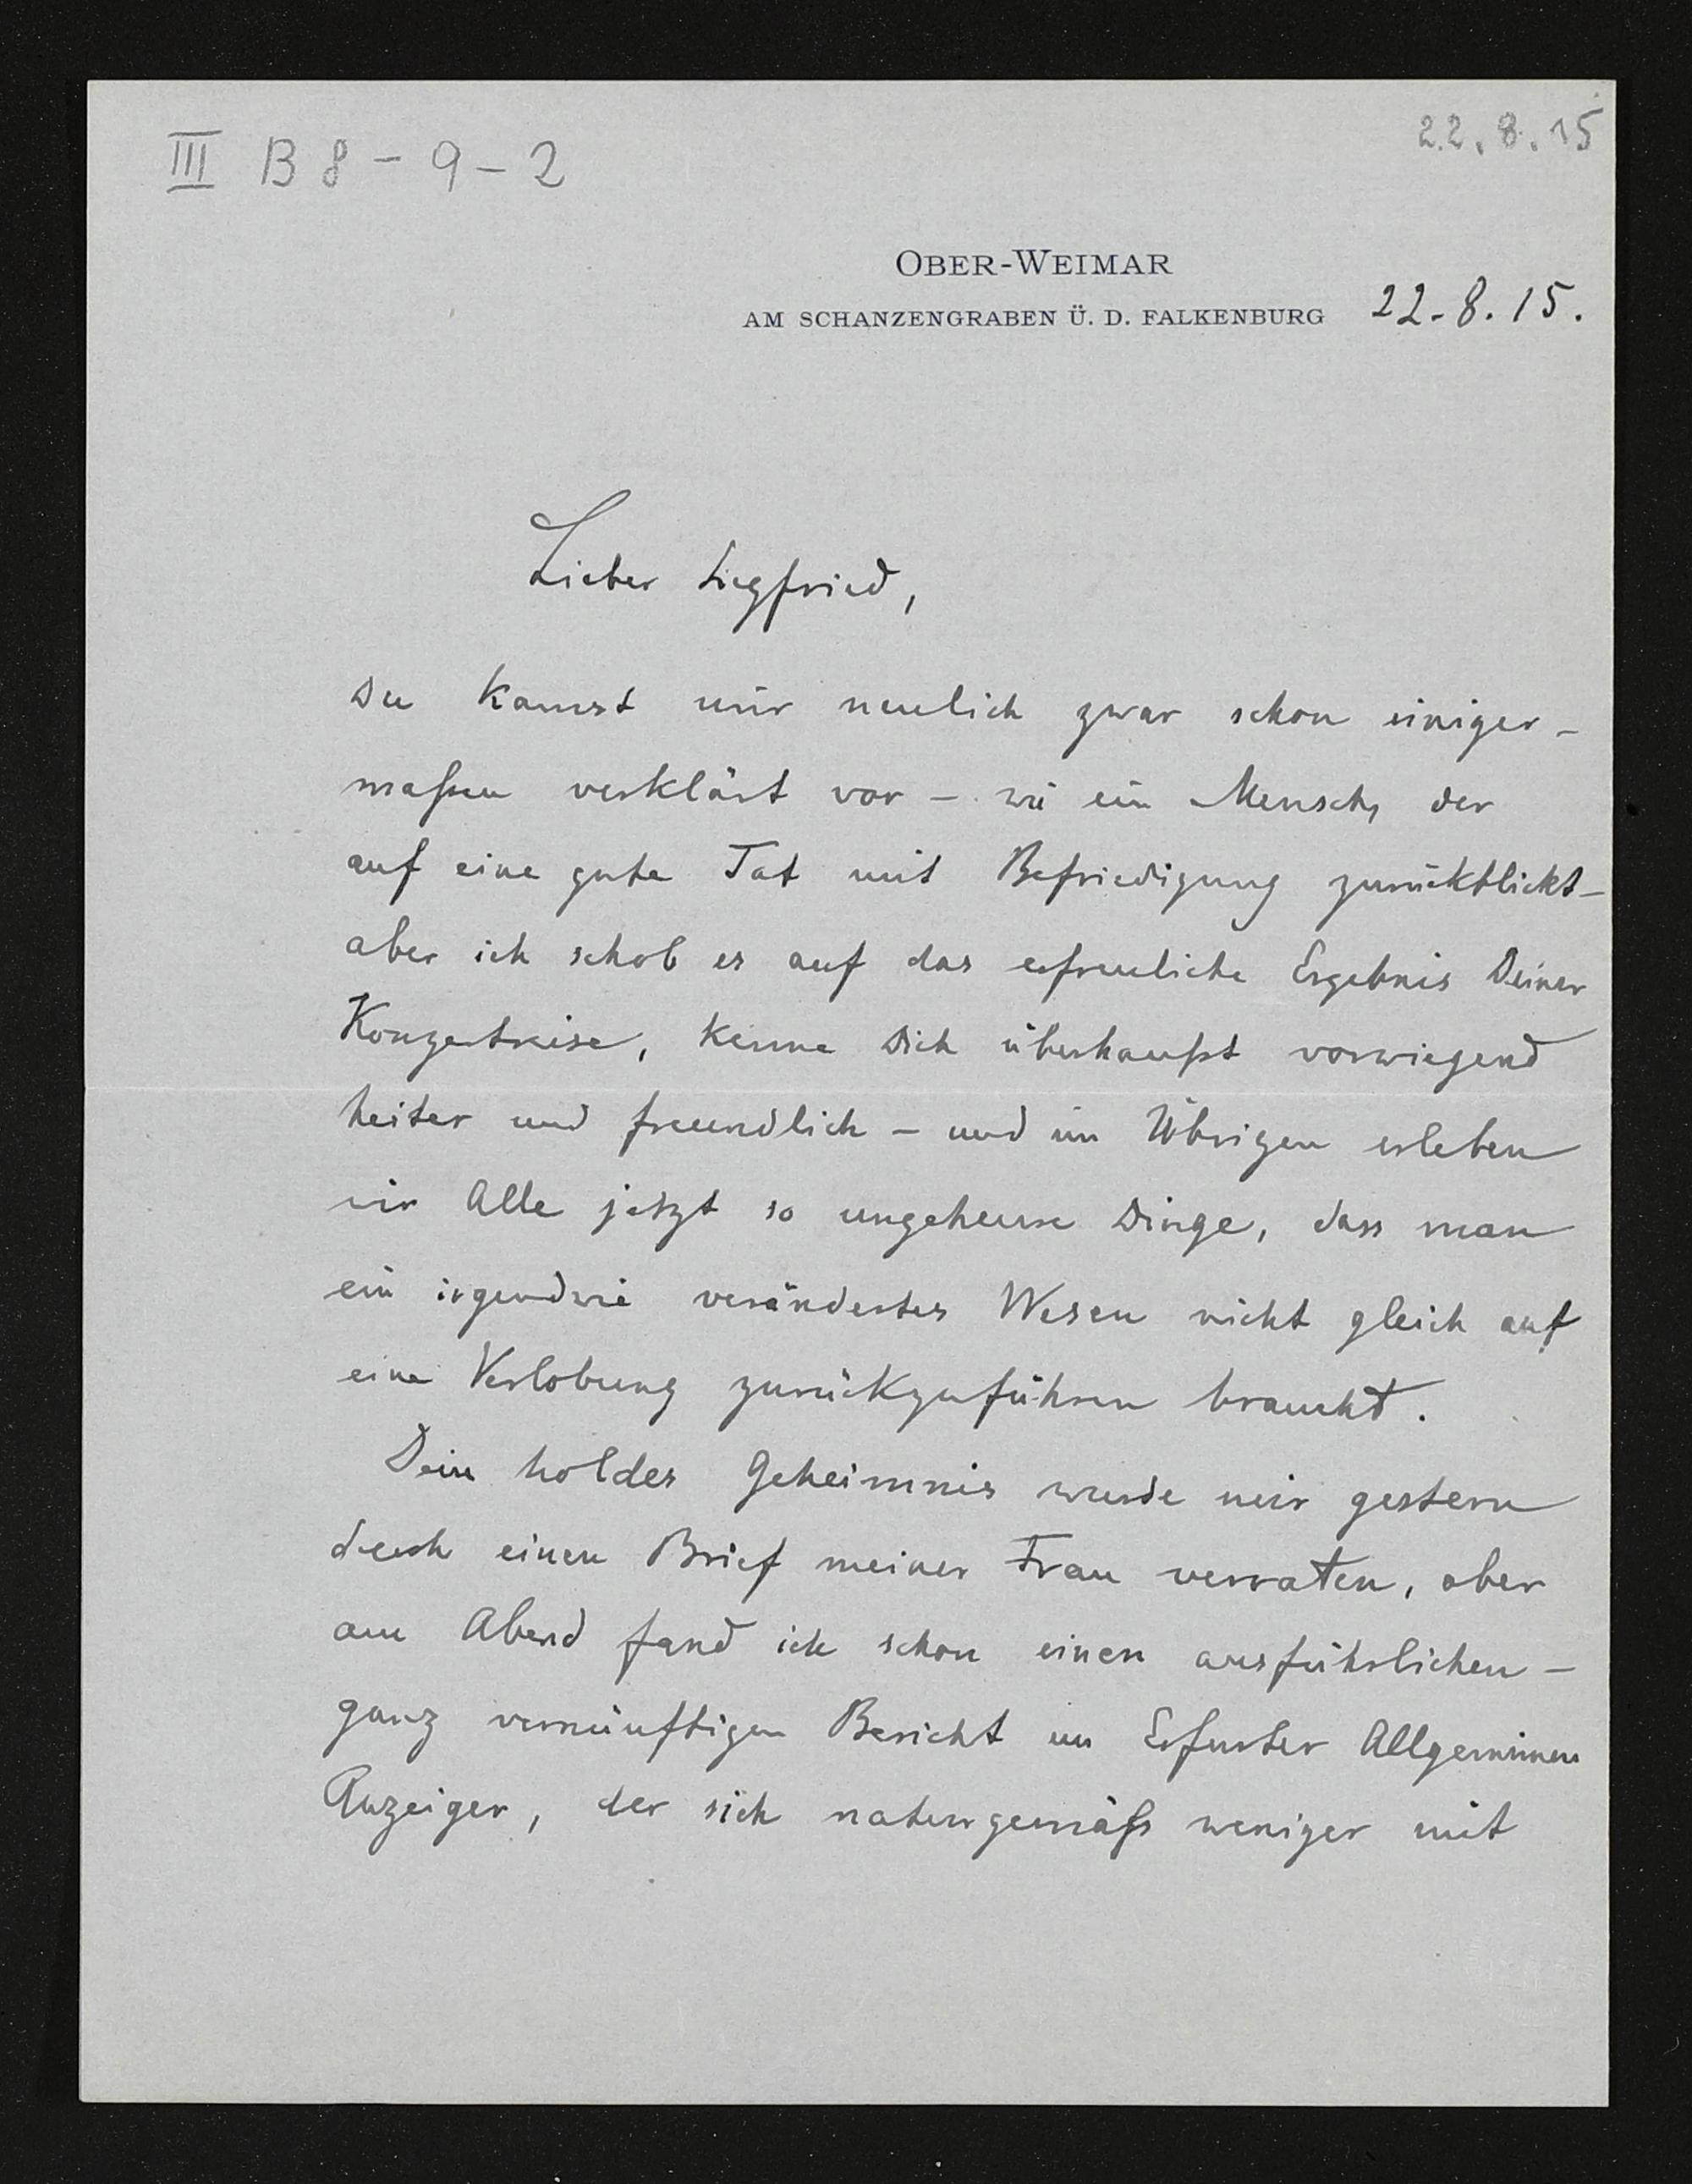 III B 8 - 9 - 2
22.8.15
OBER-WEIMAR
AM SCHANZENGRABEN Ü. D. FALKENBURG 22.8.15.
Lieber Siegfried,
Du kamst mir neulich zwar schon einiger-
maßen verklärt vor – wie ein Mensch, der
auf eine gute Tat mit Befriedigung zurückblickt –
aber ich schob es auf das erfreuliche Ergebnis Deiner
Konzertreise, kenne Dich überhaupt vorwiegend
heiter und freundlich – und im Übrigen erleben
wir Alle jetzt so ungeheure Dinge, dass man
ein irgendwie verändertes Wesen nicht gleich auf
eine Verlobung zurückzuführen braucht.
Dein holdes Geheimnis wurde mir gestern
durch einen Brief meiner Frau verraten, aber
am Abend fand ich schon einen ausführlichen –
ganz vernünftigen Bericht im Erfurter Allgemeinen
Anzeiger, der sich naturgemäß weniger mit